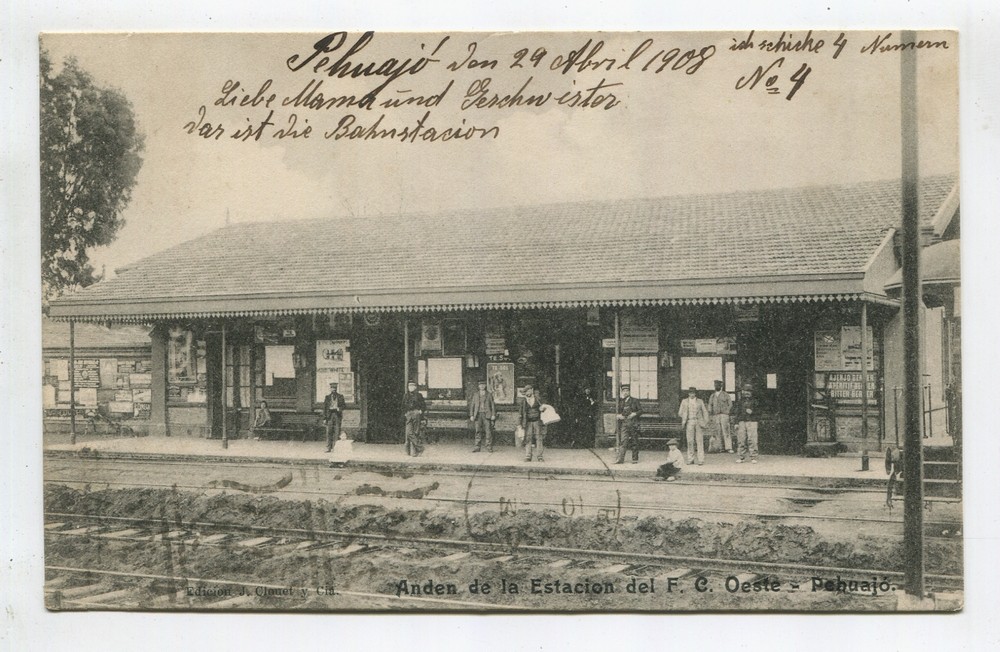 Pehuajó den 29 Abril 1908
ich schicke 4 Numern
No 4
Liebe Mama und Geschwister
das ist die Bahnstacion
AJENJO BERGER
APERITIF BERGER
BITTER BERGER
Edición J. Clouet y Cia.
Anden de la Estacion del F. C. Oeste - Pehuajó.